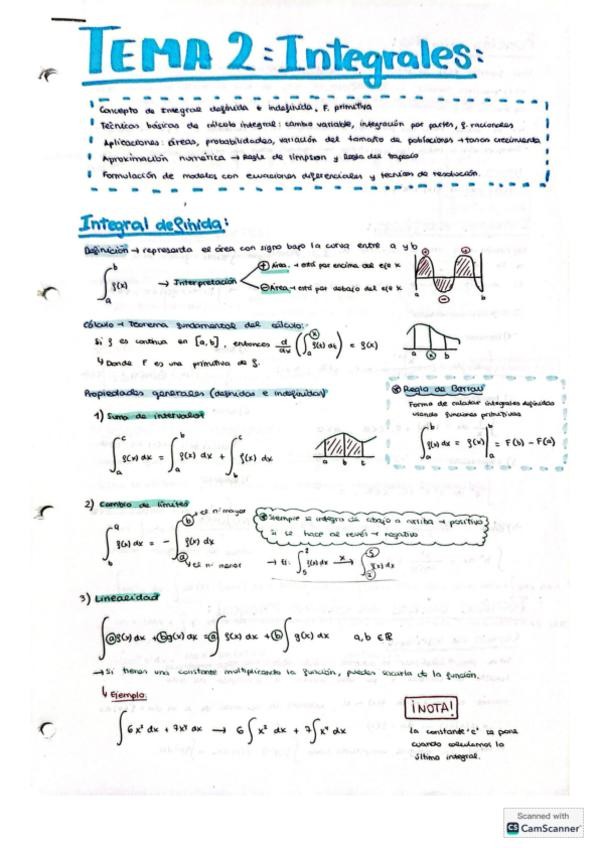 TEMA 2: Integrales:
Concepto de Integral definida e indefinida, F. primitiva
Técnicas básicas de cálculo integral: cambio variable, integración por partes, f. racionales
Aplicaciones: áreas, probabilidades, variación del tamaño de poblaciones → tanan crecimiento
Aproximación numérica → Regla de Simpson y Regla del trapecio
Formulación de modelos con ecuaciones diferenciales y técnicas de resolución.
Integral definida:
Definición → representa el área con signo bajo la curva entre a y b
∫_a^b f(x) → Interpretación
⊕ Área → está por encima del eje x
⊖ Área → está por debajo del eje x
a b
Cálculo → Teorema fundamental del cálculo:
Si f es continua en [a, b], entonces d/dx (∫_a^x f(t) dt) = f(x)
↳ Donde F es una primitiva de f.
a x b
Propiedades generales (definidas e indefinidas)
⊛ Regla de Barrow
Forma de calcular integrales definidas
usando funciones primitivas
∫_a^b f(x) dx = f(x)|_a^b = F(b) - F(a)
1) Suma de intervalos
∫_a^c f(x) dx = ∫_a^b f(x) dx + ∫_b^c f(x) dx
a b c
2) Cambio de límites
∫_b^a f(x) dx = - ∫_a^b f(x) dx
→ es nº mayor
→ es nº menor
⊛ Siempre se integra de abajo a arriba → positivo
Si se hace al revés → negativo
→ Ej: ∫_5^2 f(x) dx x→ ∫_2^5 f(x) dx
3) Linealidad
∫ a f(x) dx + b g(x) dx = a ∫ f(x) dx + b ∫ g(x) dx a, b ∈ ℝ
→ Si tienes una constante multiplicando la función, puedes sacarla de la función.
↳ Ejemplo:
∫ 6x² dx + 7x⁴ dx → 6 ∫ x² dx + 7 ∫ x⁴ dx
¡NOTA!
La constante 'c' se pone
cuando calculamos la
última integral.
Scanned with
CS CamScanner